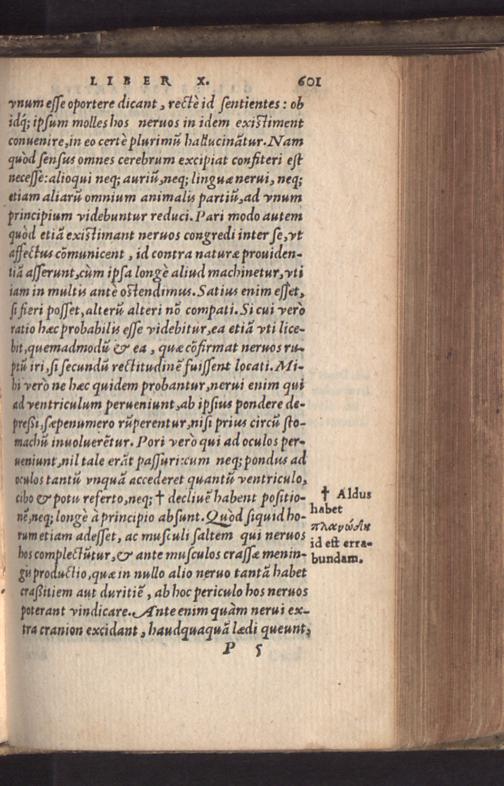 LIBER X. 601
vnum esse oportere dicant, rectè id sentientes: ob
idq́; ipsum molles hos neruos in idem existiment
conuenire, in eo certè plurimũ hallucinãtur. Nam
quòd sensus omnes cerebrum excipiat confiteri est
necesse: alioqui neq; auriũ, neq; linguæ nerui, neq;
etiam aliarũ omnium animalis partiũ, ad vnum
principium videbuntur reduci. Pari modo autem
quòd etiã existimant neruos congredi inter se, vt
affectus cõmunicent, id contra naturæ prouiden-
tiã asserunt, cùm ipsa longè aliud machinetur, vti
iam in multis antè ostendimus. Satius enim esset,
si fieri posset, alterũ alteri nõ compati. Si cui verò
ratio hæc probabilis esse videbitur, ea etiã vti lice-
bit, quemadmodũ & ea, quæ cõfirmat neruos ru-
ptũ iri, si secundũ rectitudinẽ fuissent locati. Mi-
hi verò ne hæc quidem probantur, nerui enim qui
ad ventriculum perueniunt, ab ipsius pondere de-
pressi, sæpenumero rũperentur, nisi prius circũ sto-
machũ inuoluerẽtur. Pori verò qui ad oculos per-
ueniunt, nil tale erãt passuri: cum neq; pondus ad
oculos tantũ vnquã accederet quantũ ventriculo,
cibo & potu referto, neq; † decliuẽ habent positio-
nẽ, neq; longè à principio absunt. Quòd si quid ho-
rum etiam adesset, ac musculi saltem qui neruos
hos complectũtur, & ante musculos crassæ menin-
gis productio, quæ in nullo alio neruo tantã habet
crassitiem aut duritiẽ, ab hoc periculo hos neruos
poterant vindicare. Ante enim quàm nerui ex-
tra cranion excidant, haudquaquã lædi queunt,
P 5
† Aldus
habet
πλανώδη
id est erra-
bundam.